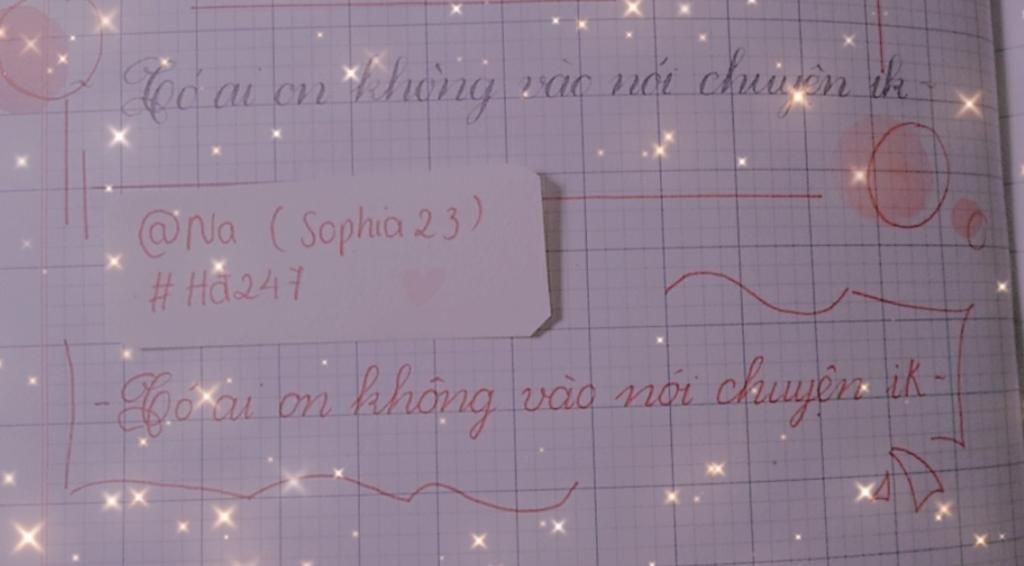 - Có ai on không vào nói chuyện ik -
@Na (Sophia23)
#Hā247
- Có ai on không vào nói chuyện ik -